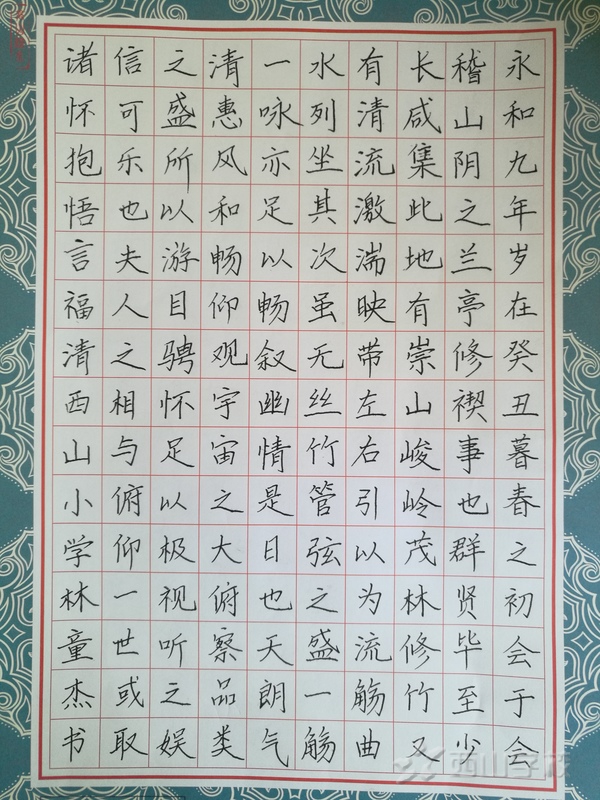 永和九年岁在癸丑暮春之初会于会
稽山阴之兰亭修禊事也群贤毕至少
长咸集此地有崇山峻岭茂林修竹又
有清流激湍映带左右引以为流觞曲
水列坐其次虽无丝竹管弦之盛一觞
一咏亦足以畅叙幽情是日也天朗气
清惠风和畅仰观宇宙之大俯察品类
之盛所以游目骋怀足以极视听之娱
信可乐也夫人之相与俯仰一世或取
诸怀抱悟言福清西山小学林童杰书
西山学校